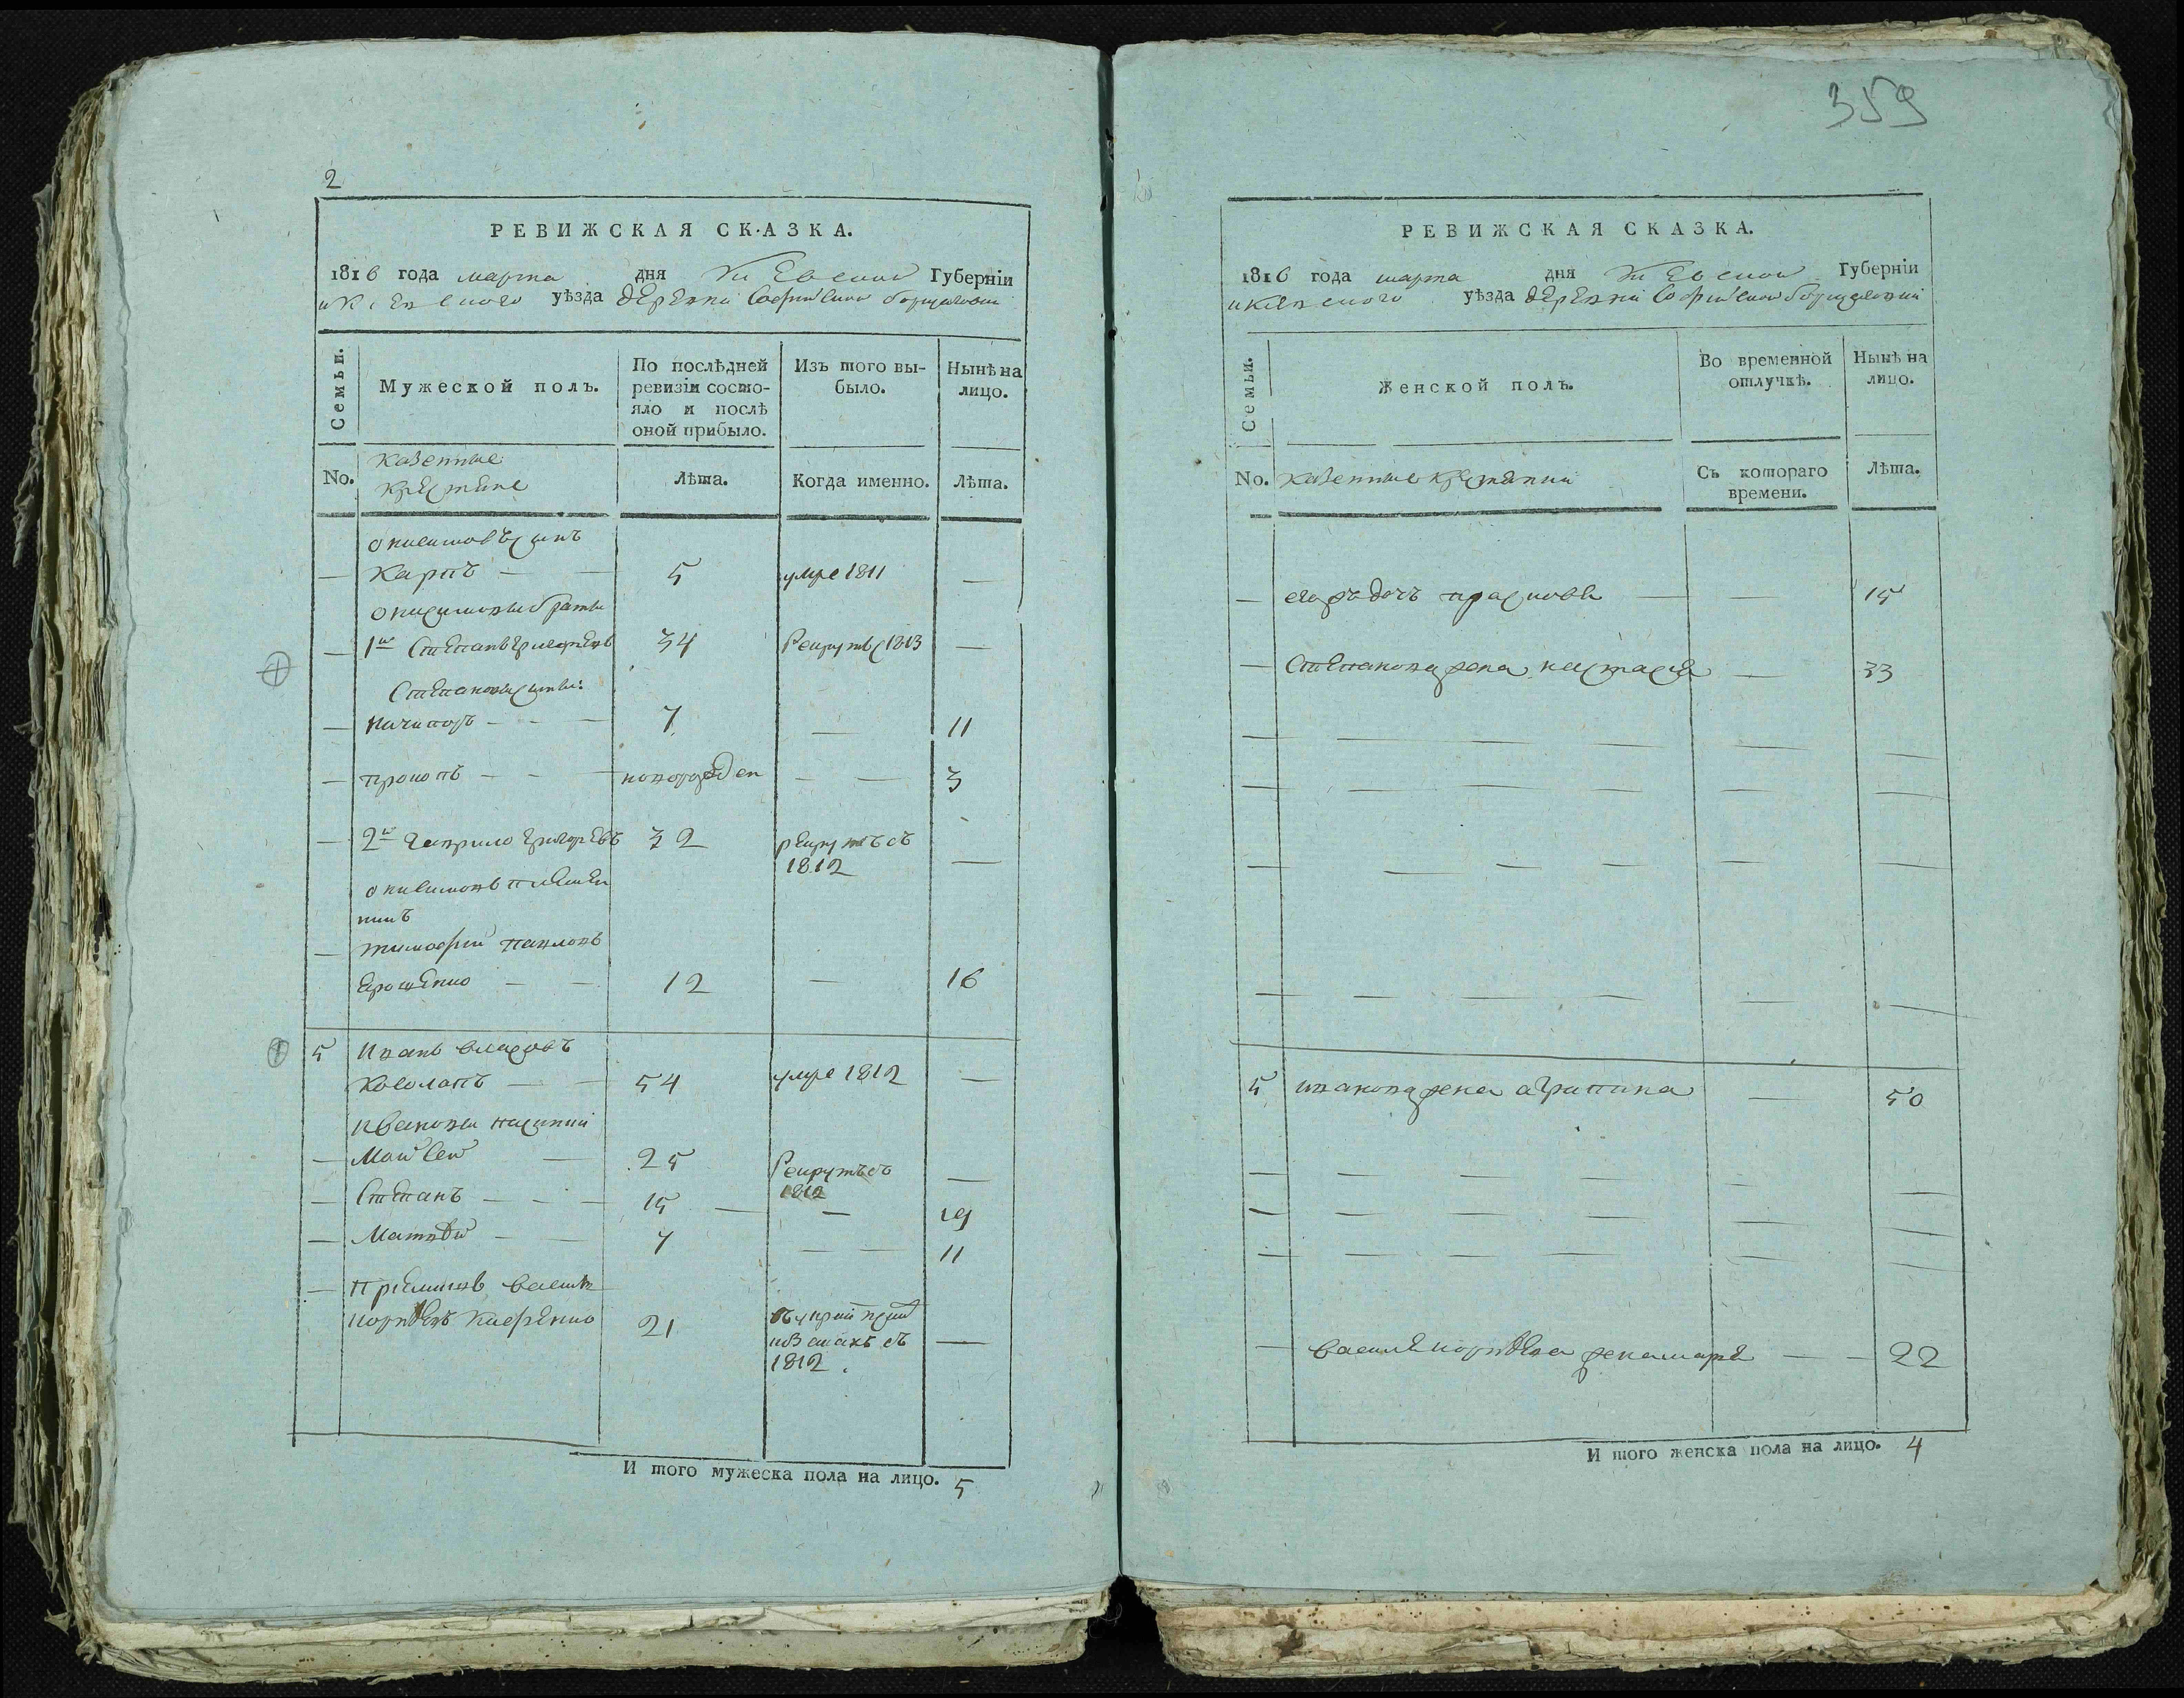 2
РЕВИЖСКАЯ СКАЗКА.
1816 года марта дня Киевской Губерніи
и Киевского уѣзда деревни Софиевской борщаговки
Семьи.
Мужеской полъ.
По послѣдней ревизіи состояло и послѣ оной прибыло.
Изъ того выбыло.
Нынѣ на лицо.
No.
казенные
крестяне
Лѣта.
Когда именно.
Лѣта.
онисимовъ сынъ
Карпъ 5 умре 1811
онисимовы браты
1й Степанъ григорьевъ 34 Рекрутъ с 1813
Степановы сыны:
Ничипоръ 7 11
прокопъ новорожден 3
2й гаврило григорьевъ 32 рекрутъ съ
1812
онисимовъ племен
никъ
тимофий павловъ
Ярошенко 12 16
5 Иванъ власовъ
Косолапъ 54 умре 1812
ивановы пасынки
Мойсей 25 Рекрутъ съ
1812
Степанъ 15 19
Матвѣй 7 11
Пріемишъ василь
корнѣевъ 21
козакъ съ
1812.
И того мужеска пола на лицо. 5
359
РЕВИЖСКАЯ СКАЗКА.
1816 года марта дня Киевской Губерніи
и Киевского уѣзда деревни Софиевской борщаговки
Семьи.
Женской полъ.
Во временной отлучкѣ.
Нынѣ на лицо.
No.
казенные крестянки
Съ котораго времени.
Лѣта.
его дочь 15
Степанова жена настася 33
5 иванова жена агрипина 50
василя корнѣева жена маря 22
И того женска пола на лицо. 4